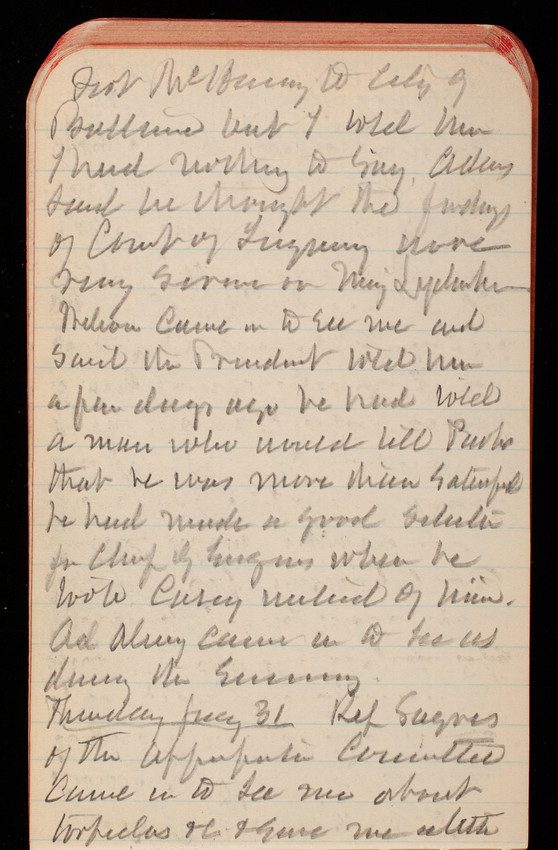 to City of
but I told him
I had nothing to say. Adams
said he thought the findings
of Court of Inquiry were
very severe on Maj Lydecker
Wilson came in to see me and
said the President told him
a few days ago he had told
a man who would tell Parke
that he was more than satisfied
he had made a good selection
for Chief of Engineers when he
took Casey instead of him.
Ad Alvey came in to see us
during the evening.
Thursday Jany 31 Rep Sayres
of the appropriation Committee
came in to see me about
torpedos &c & gave me a letter